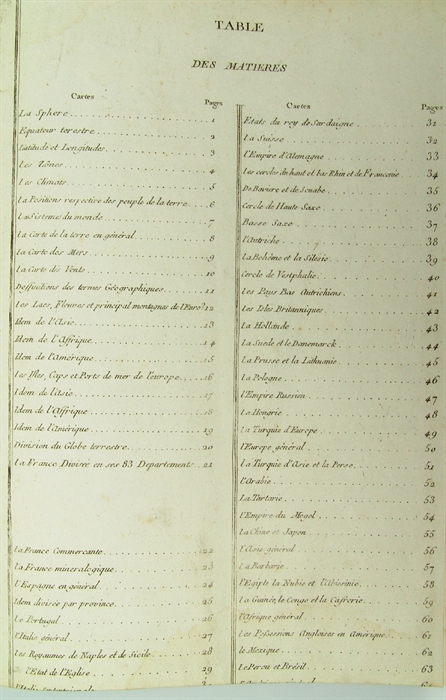 TABLE
DES MATIERES
Cartes Pages
La Sphere 1
Equateur terrestre 2
Latitude et Longitudes 3
Les Zônes 4
Les Climats 5
La Positions respective des peuple de la terre 6
La Sistemes du monde 7
La Carte de la terre en général 8
La Carte des Mers 9
La Carte des Vents 10
Deffinitions des termes Géographiques 11
Les Lacs, Fleuves et principal montagnes de l'Euro? 12
Idem de l'Asie 13
Idem de l'Affrique 14
Idem de l'Amérique 15
Les Isles, Caps et Ports de mer de l'europe 16
Idem de l'Asie 17
Idem de l'Affrique 18
Idem de l'Amérique 19
Division du Globe terrestre 20
La France Divisée en ses 83 Departements 21
La France Commercante 22
La France mineralogique 23
L'Espagne en général 24
Idem divisée par province 25
Le Portugal 26
L'Italie général 27
Les Royaumes de Naples et de Sicile 28
l'Etat de l'Eglise 29
Cartes Pages
Etats du roy de Sardaigne 31
La Suisse 32
l'Empire d'Alemagne 33
Les cercles du haut et bas Rhin et de Franconie 34
De Baviere et de Souabe 35
Cercle de Haute Saxe 36
Basse Saxe 37
l'Autriche 38
La Bohême et la Silesie 39
Cercle de Vestphalie 40
Les Pays Bas Autrichiens 41
Les Isles Britanniques 42
La Hollande 43
La Suede et le Danemarck 44
La Prusse et la Lithuanie 45
La Pologne 46
l'Empire Russien 47
La Hongrie 48
La Turquie d'Europe 49
l'Europe général 50
La Turquie d'Asie et la Perse 51
l'Arabie 52
La Tartarie 53
l'Empire du Mogol 54
La Chine et Japon 55
l'Asie général 56
La Barbarie 57
l'Egipte la Nubie et l'Abissinie 58
La Guinée, le Congo et la Cafrerie 59
l'Afrique général 60
Les Possessions Angloises en Amérique 61
le Mexique 62
Le Perou et Brésil 63